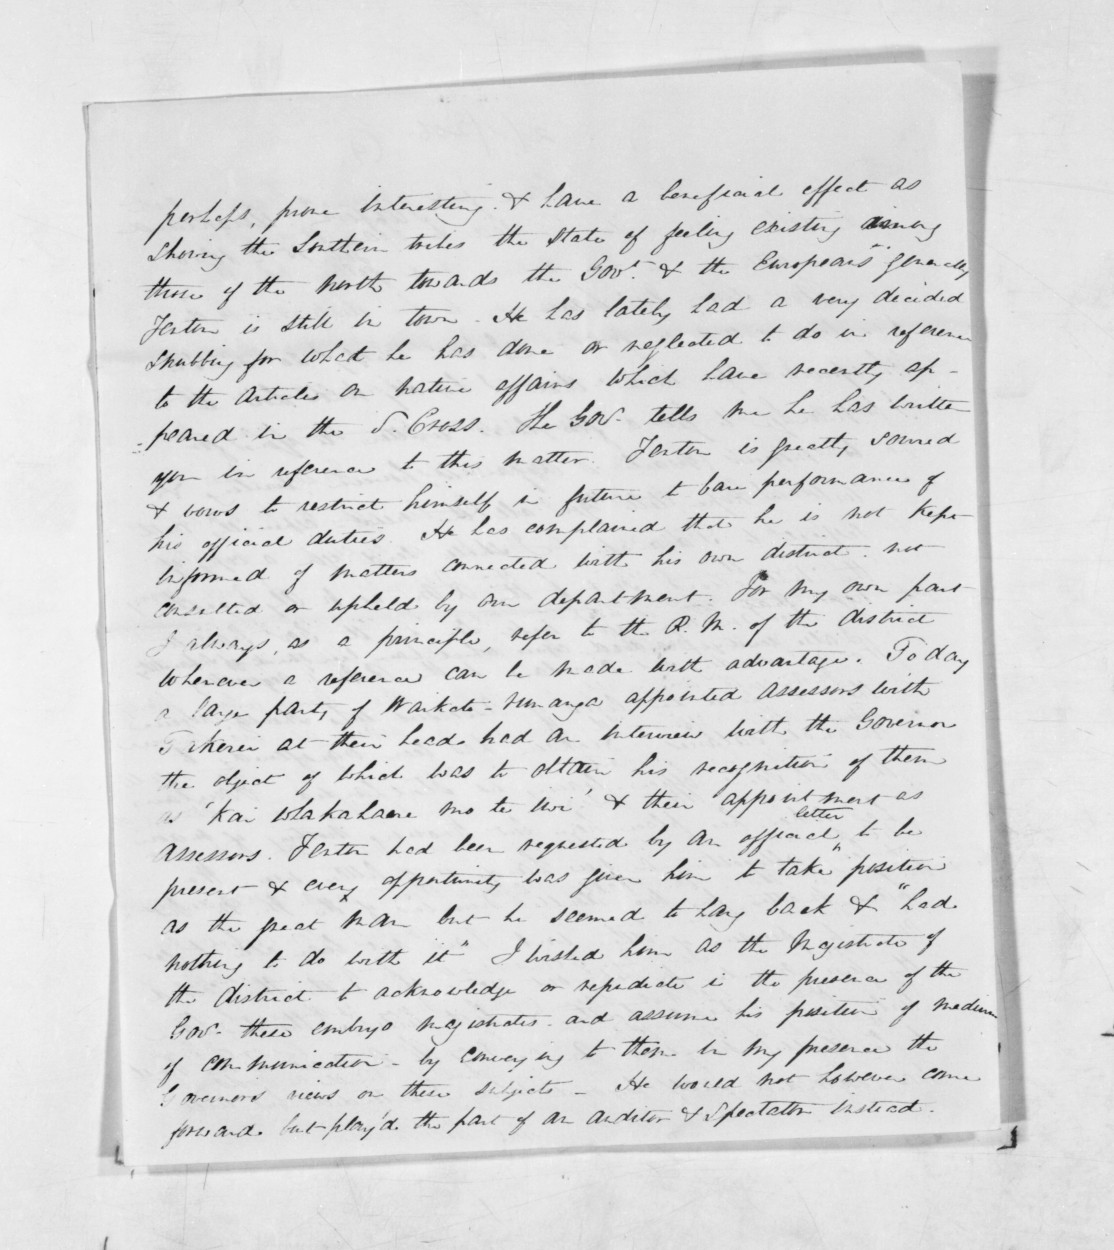 perhaps, prove interesting & have a beneficial effect as
showing the Southern tribes the state of feeling existing among
those of the North towards the Govt. & the Europeans generally
Fenton is still in town. He has lately had a very decided
snubbing for what he has done or neglected to do in reference
to the articles on native affairs which have recently ap-
peared in the S. Cross. The Gov. tells me he has written
you in reference to this matter. Fenton is greatly soured
& vows to restrict himself in future to bare performance of
his official duties. He has complained that he is not kept
informed of matters connected with his own district. not
consulted or upheld by our department. For my own part
I always, as a principle, refer to the R.M. of the district
whenever a reference can be made with advantage. To day
a large party of Waikato-runanga appointed assessors with
Takerei at their heads had an interview with the Governor
the object of which was to obtain his recognition of them
as 'Kai whakahaere mo te iwi' & their appointment as
assessors. Fenton had been requested by an official letter to be
present & every opportunity was given him to take position
as the great man but he seemed to hang back & "had
nothing to do with it" I wished him as the Magistrate of
the district to acknowledge or repudiate in the presence of the
Gov. these embryo magistrates and assume his position of medium
of communication - by conveying to them in my presence the
Governors views on these subjects - He would not however come
forward but play'd the part of an auditor & Spectator instead.